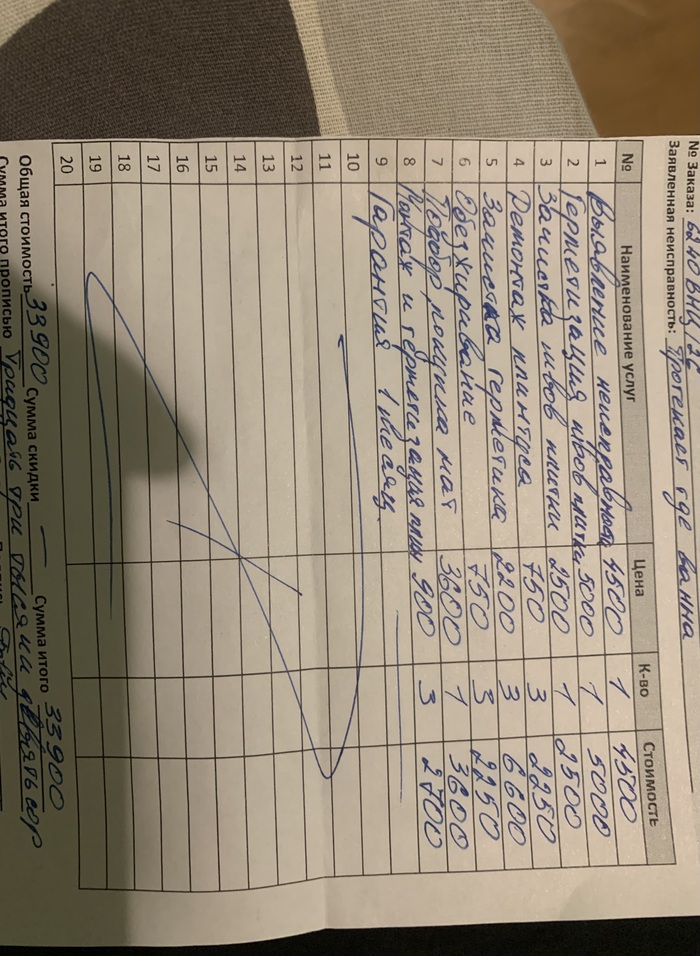 № Заказа:
Заявленная неисправность: Протекает где ванна
№ Наименование услуг Цена К-во Стоимость
1 Выявление неисправности 4500 1 4500
2 Герметизация швов плитка 5000 1 5000
3 Зачистка швов плитки 2500 1 2500
4 Демонтаж плинтуса 750 3 2250
5 Зачистка герметика 2200 3 6600
6 Обезжиривание 750 3 2250
7 Подбор покупка мат 3600 1 3600
8 Монтаж и герметизация 900 3 2700
9 Гарантия 1 месяц.
10
11
12
13
14
15
16
17
18
19
20
Общая стоимость 33900 Сумма скидки — Сумма итого 33900
Сумма итого прописью Тридцать три тысячи девятьсот